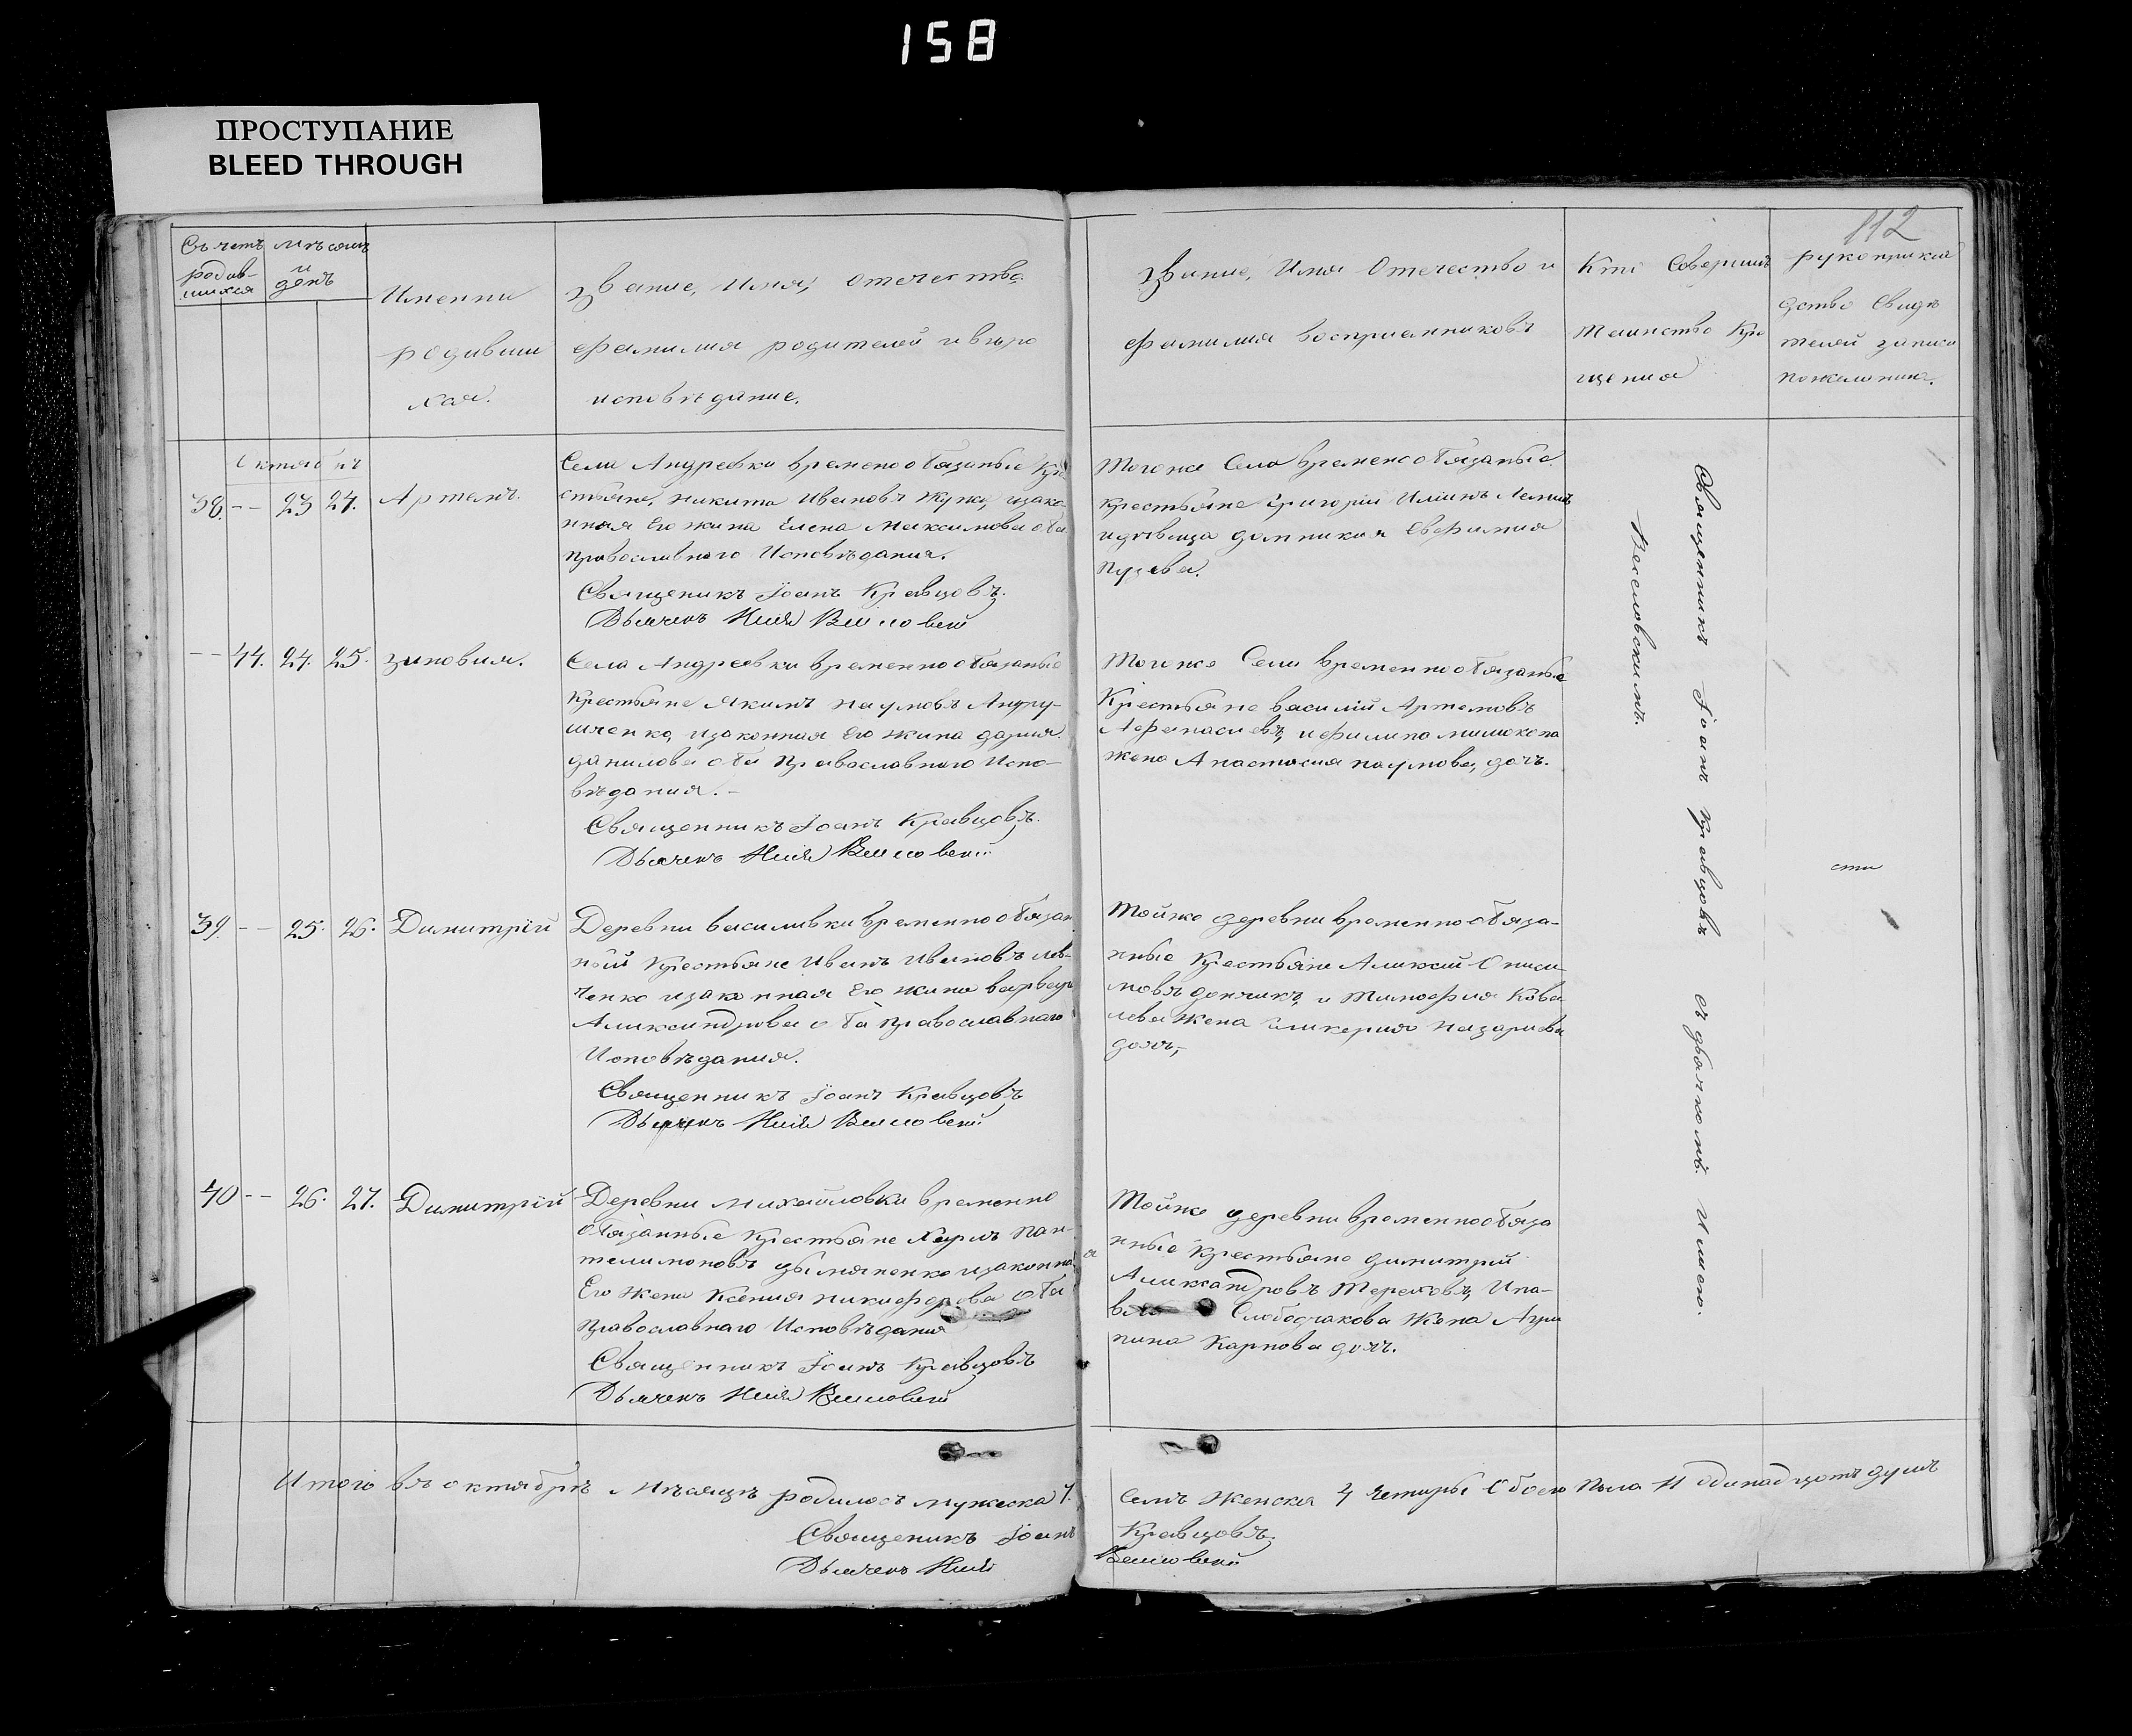 158
ПРОСТУПАНИЕ
BLEED THROUGH
112
Счетъ родив-
шихся
Мѣсяцъ
и
день
Имена
родивши
хся.
Звание, Имя, отечество
фамилия родителей и вѣро
исповѣдание.
Звание, Имя Отечество и
фамилия восприемниковъ
Кто Совершилъ
Таинство Кре
щения
рукоприкла
дство Свидѣ
телей записи
пожеланию.
Октябрь
38. -- 23 24. Артемъ.
Села Андреевки временообязаные кре
стьяне, никита Ивановъ Жукъ, изако-
нная Его жина Елена Максимова оба
православного Исповѣдания.
Священикъ Іоанъ Кравцовъ.
Дьячекъ Илія Веселовскій
Тогоже Села временообязаные
крестьяне Григорій
идѣвица Евфимия
-- 44. 24. 25. зиновия.
Села Андреевки временнообязаные
Крестьяне Якимъ наумовъ Андру-
щенко, изаконная Его жина дария
данилова оба Православного Испо-
вѣдания. -
Священникъ Іоанъ Кравцовъ.
Дьячекъ Илія Веселовскій
Тогоже Села временнообязаные
Крестьяне василій Артемовъ
Афанасиевъ, ифилипа
жена Анастасия наумова, дочъ.
39. -- 25. 26. Димитрій
Деревни василивки временнообязан
ный Крестьяне Иванъ Ивановъ лев-
ченко изаконная Его жина варвара
Александрова оба православнаго
Исповѣдания.
Священникъ Іоанъ Кравцовъ
Дьячекъ Илія Веселовскій
Тойже деревни временнообяза-
нные Крестьяне Аликсий Ониси-
мовъ и Тимофия Кова
лева Жена Гликерия назариева
дочъ,
40 -- 26. 27. Димитрій
Деревни михайловки временно
обязанные Крестьяне Карпъ пан-
телимоновъ изаконна
Его Жена Ксения никифорова оба
православнаго Исповѣдания
Священникъ Іоанъ Кравцовъ
Дьячекъ Илія Веселовскій
Тойже деревни временнообяза
нные Крестьяне димитрій
Александровъ Тереховъ, Ипа-
вла Слободчакова Жена Агри
пина Карпова дочъ.
Священникъ Іоанъ Кравцовъ съ дьячкомъ Илиею
Веселовскимъ.
сти
Итого въ октябрѣ Мѣсяцѣ родилосъ мужеска 7. семъ Женска 4 четыры Обоего Пола 11 одинадцатъ душъ
Священикъ Іоанъ Кравцовъ
Дьячекъ Илія Веселовскій